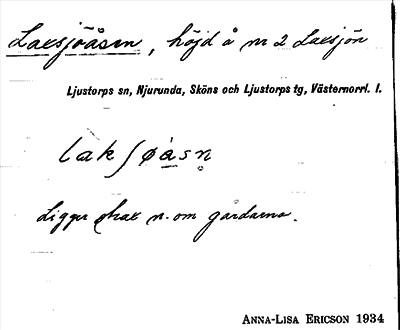 Laxsjöåsen, höjd å nr 2 Laxsjön
Ljustorps sn, Njurunda, Sköns och Ljustorps tg, Västernorrl. l.
lakʃøåsn̥
Ligger strax n. om gårdarna.
ANNA-LISA ERICSON 1934